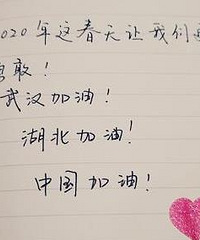 2020年这春天让我们
勇敢！
武汉加油！
湖北加油！
中国加油！